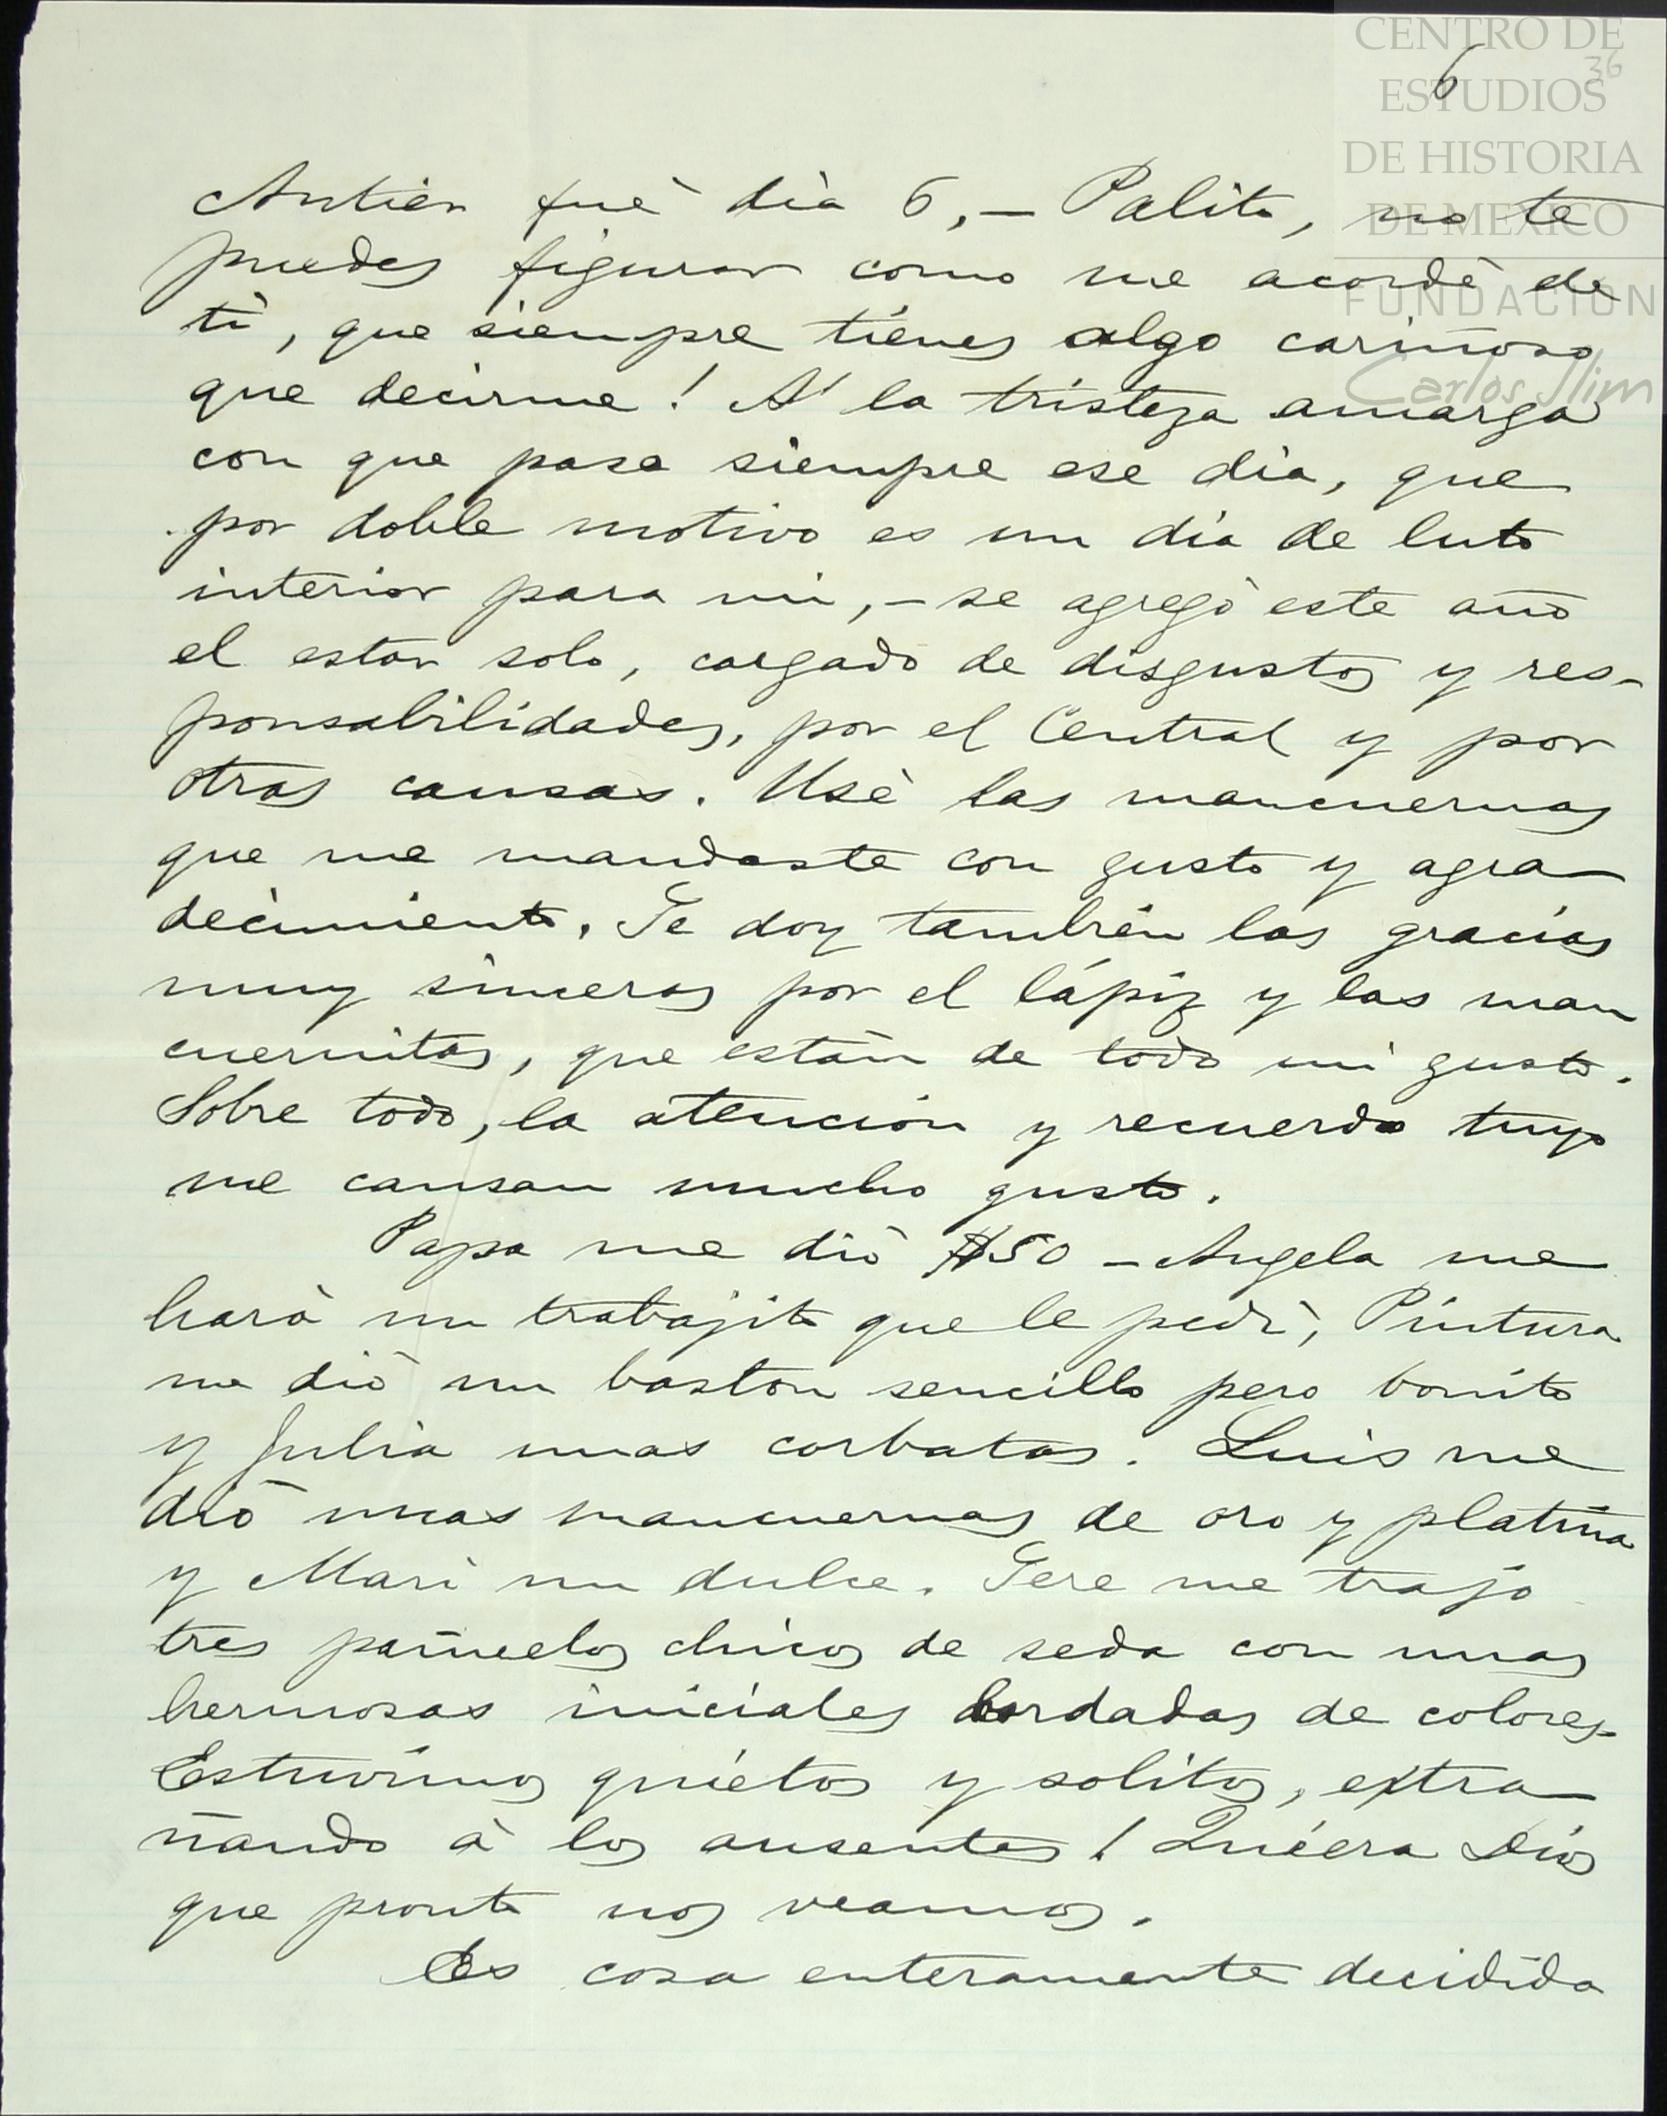 CENTRO DE
ESTUDIOS
DE HISTORIA
DE MEXICO
FUNDACIÓN
Carlos Slim
6
36
Antier fuè dìa 6,- Palito, no te
puedes figurar como me acordè de
tì, que siempre tienes algo cariñoso
que decirme! A' la tristeza amarga
con que paso siempre ese dia, que
por doble motivo es un dia de luto
interior para mi,- se agregò este año
el estar solo, cargado de disgustos y res-
ponsabilidades, por el Central y por
otras causas. Usè las mancuernas
que me mandaste con gusto y agra-
decimiento. Te doy tambien las gracias
muy sinceras por el lápiz y las man
cuernitas, que estàn de todo mi gusto.
Sobre todo, la atención y recuerdo tuyo
me causan mucho gusto.
Papa me diò $50 - Angela me
harà un trabajito que le pedì, Pintura
me diò un baston sencillo pero bonito
y Julia unas corbatas. Luis me
diò unas mancuernas de oro y platina
y Marì un dulce. Tere me trajo
tres pañuelos chicos de seda con unas
hermosas iniciales bordadas de colores.
Estuvimos quietos y solitos, extra-
ñando à los ausentes! Quiera Dios
que pronto nos veamos.
Es cosa enteramente decidida